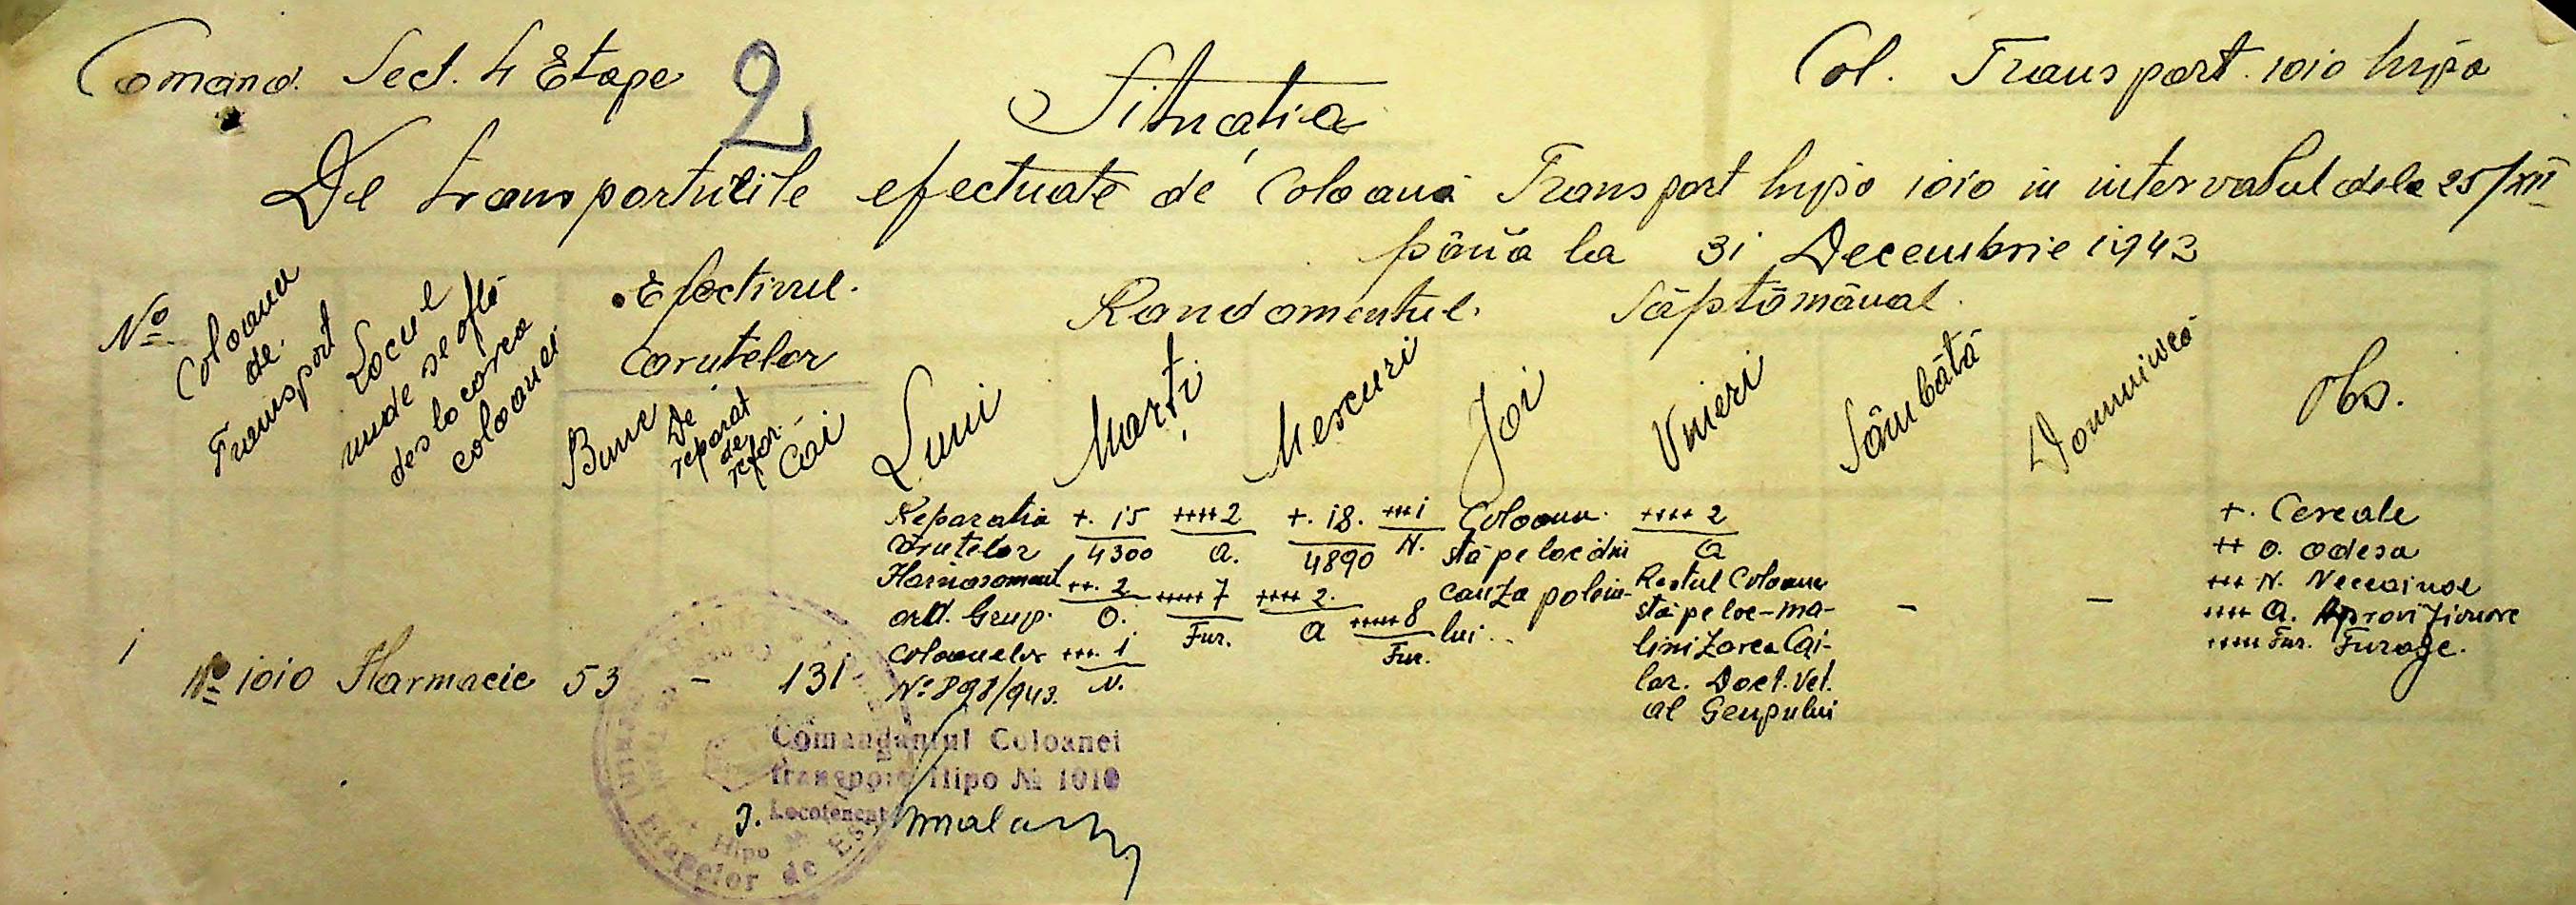 Comand. Sect. 4 Etape
2
Col. Transport. 1010 hipo
Situația
De transporturile efectuate de Coloana Transport hipo 1010 in intervalul dela 25/XII
până la 31 Decembrie 1943
No
Coloana
de.
Transport
Locul
unde se află
deslocarea
coloanei
Efectivul.
Carutelor
Bune
De
reparat
de
refor.
Cai
Randamentul. Săptămânal.
Luni
Marți
Mescuri
Joi
Vnieri
Sâmbătă
Douminică
Obs.
1
No 1010
Harmacie
53
-
131
Reparatia
Carutelor
ord. Grup.
Coloanelor
No 898/943.
+. 15
4300
++++ 2
A.
++. 2
O.
+++++ 7
Fur.
+++. 1
N.
+. 18.
4890
+++ 1
N.
++++ 2.
A
+++++ 8
Fur.
Coloana.
stă pe loc din
cauza poleiu-
lui..
++++ 2
A
Restul Coloane
stă pe loc-ma-
linizarea Cai-
lor. Doct. Vet.
al Geupului
-
-
+. Cereale
++ O. Odesa
+++ N. Neccainoe
++++ A. Aprovizionare
+++++ Fur. Furage.
Comandantul Coloanei
Transport Hipo № 1010
Locotenent
Hipo
Etapelor de Est